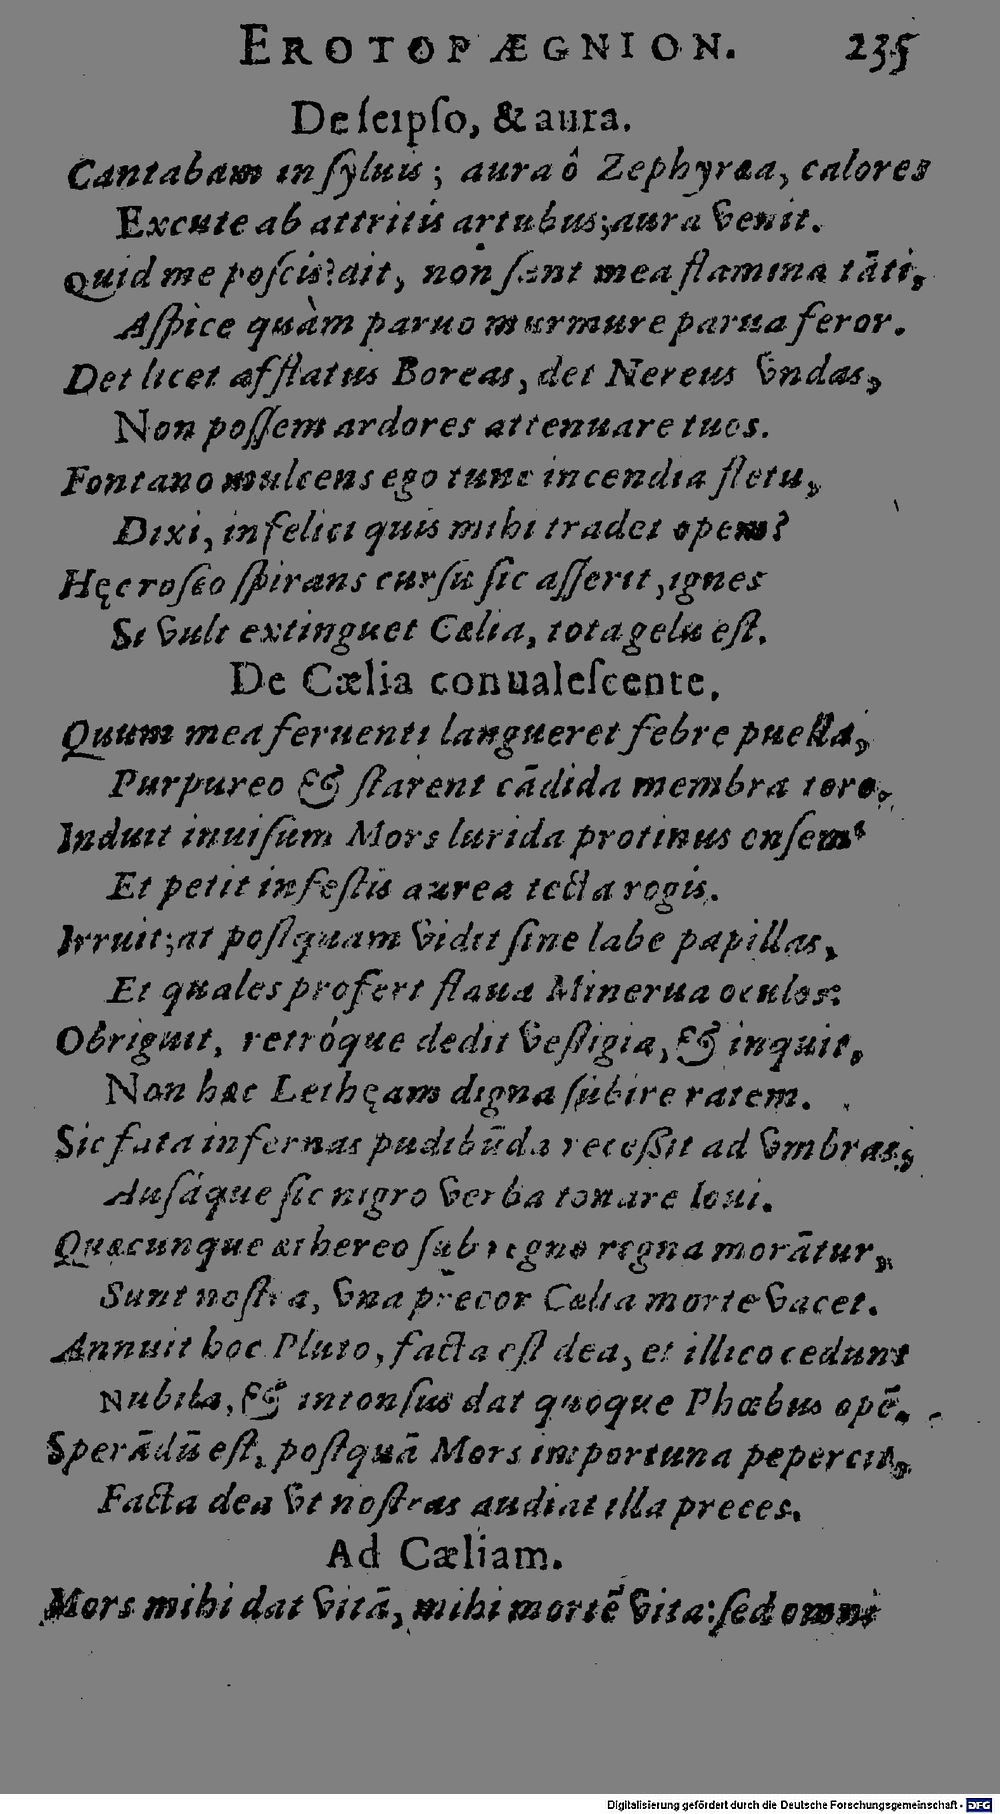 EROTOPÆGNION. 235
De ſeipſo, & aura.
Cantabam in ſyluis; aura ô Zephyræa, calores
Excute ab attritis artubus; aura venit.
Quid me poſcis? ait, non ſunt mea flamina tāti,
Aſpice quàm paruo murmure parua feror.
Det licet afflatus Boreas, det Nereus vndas,
Non poſſem ardores attenuare tuos.
Fontano mulcens ego tunc incendia fletu,
Dixi, infelici quis mihi tradet opem?
Hęc roſeo ſpirans curſu ſic aſſerit, ignes
Si vult extinguet Cælia, tota gelu eſt.
De Cælia conualeſcente.
Quum mea feruenti langueret febre puella,
Purpureo & ſtarent cādida membra toro,
Induit inuiſum Mors lurida protinus enſem:
Et petit infeſtis aurea tecta rogis.
Irruit; at poſtquam vidit ſine labe papillas,
Et quales profert flaua Minerua oculos:
Obriguit, retróque dedit veſtigia, & inquit,
Non hæc Lethęam digna ſubire ratem.
Sic fata infernas pudibūda receßit ad vmbras,
Auſáque ſic nigro verba tonare Ioui.
Quæcunque æthereo ſub regno regna morātur,
Sunt noſtra, vna precor Cælia morte vacet.
Annuit hoc Pluto, facta eſt dea, et illico cedunt
Nubila, & intonſus dat quoque Phœbus opē.
Sperādū eſt, poſtquā Mors importuna pepercit,
Facta dea vt noſtras audiat illa preces.
Ad Cæliam.
Mors mihi dat vitā, mihi mortē vita: ſed omni
Digitalisierung gefördert durch die Deutsche Forschungsgemeinschaft - DFG